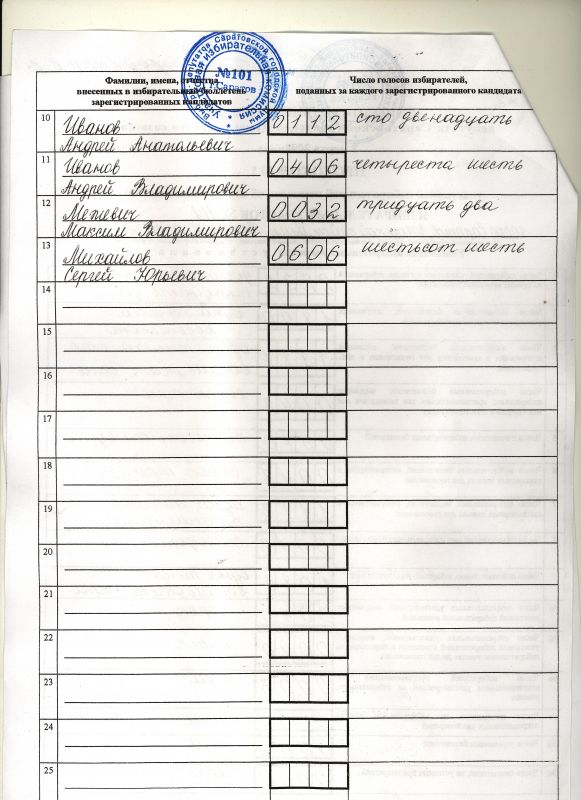 №101
г.Саратов
Фамилии, имена, отчества
внесенных в избирательный бюллетень
зарегистрированных кандидатов
Число голосов избирателей,
поданных за каждого зарегистрированного кандидата
10 Иванов 0112 сто двенадцать
Андрей Анатольевич
11 Иванов 0406 четыреста шесть
Андрей Владимирович
12 Метевич 0032 тридцать два
Максим Владимирович
13 Михайлов 0606 шестьсот шесть
Сергей Юрьевич
14
15
16
17
18
19
20
21
22
23
24
25